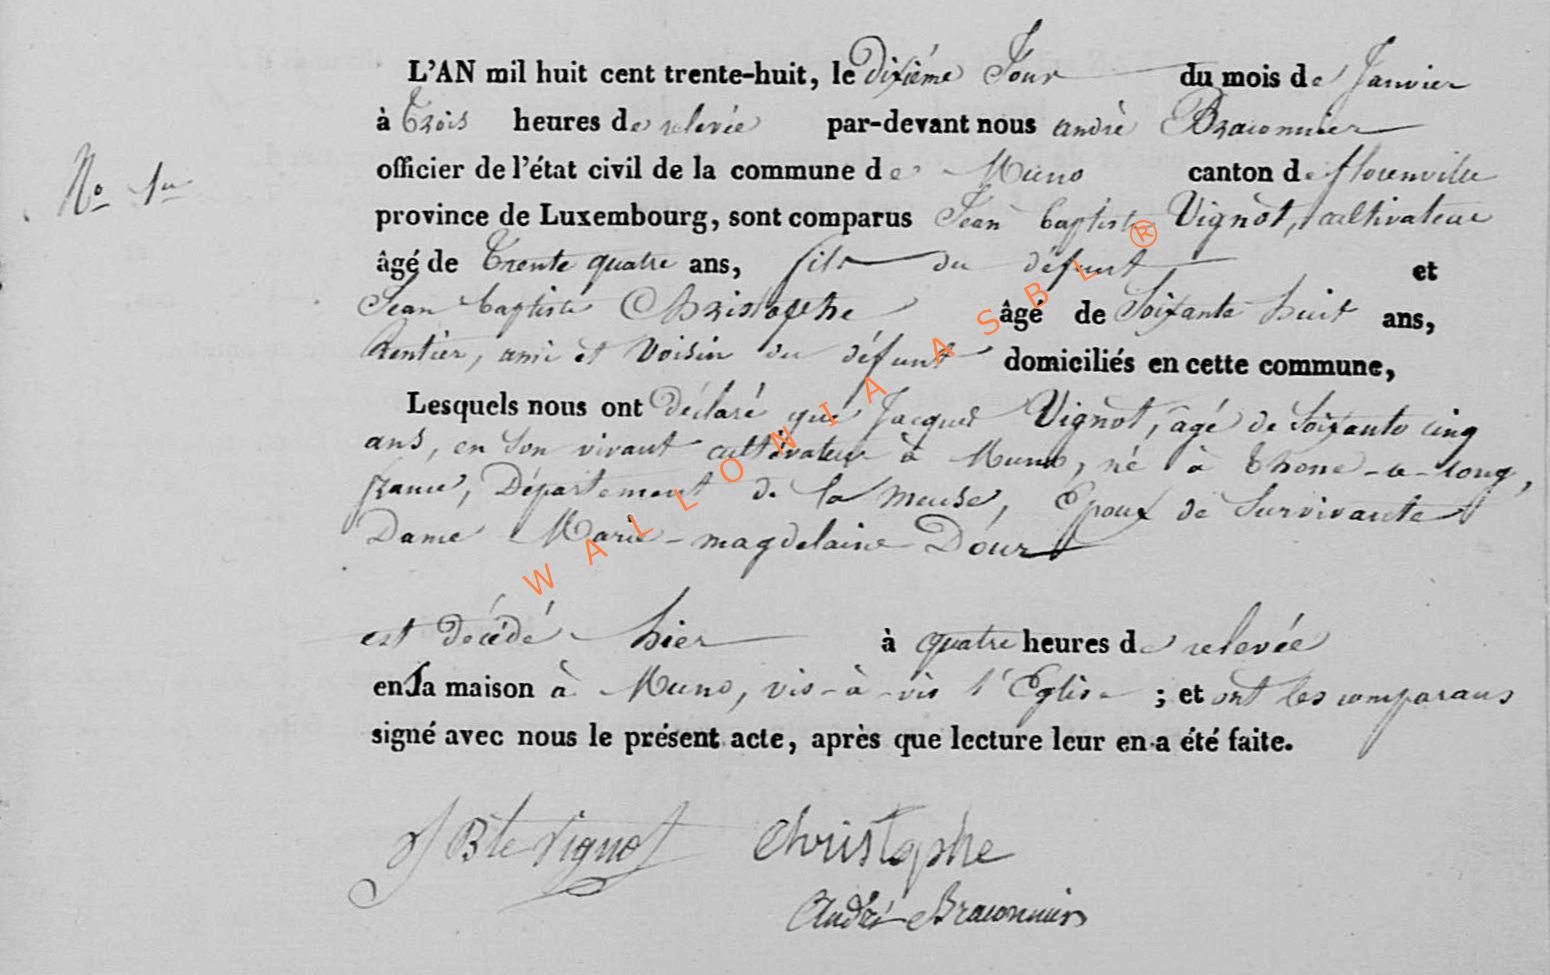 L'AN mil huit cent trente-huit, le dixiéme Jour du mois de Janvier
à trois heures de relevée par-devant nous andrè Braconnier
Nº 1er
officier de l'état civil de la commune de Muno canton de florenville
province de Luxembourg, sont comparus Jean baptiste Vignot, cultivateur
âgé de trente quatre ans, fils du défunt et
Jean baptiste Christophe âgé de Soixante huit ans,
Rentier, ami et voisin du défunt domiciliés en cette commune,
Lesquels nous ont déclaré que Jacques Vignot, âgé de Soixante cinq
ans, en son vivant cultivateur à Muno, né à thone-a-long,
france, Département de la meuse, Epoux de Survivante
Dame Marie-magdelaine Dour
est décédé hier à quatre heures de relevée
en sa maison à Muno, vis-à-vis l'Eglise ; et ont les comparans
signé avec nous le présent acte, après que lecture leur en a été faite.
JBte Vignot Christophe
André Braconnier
WALLONIA ASBL ®